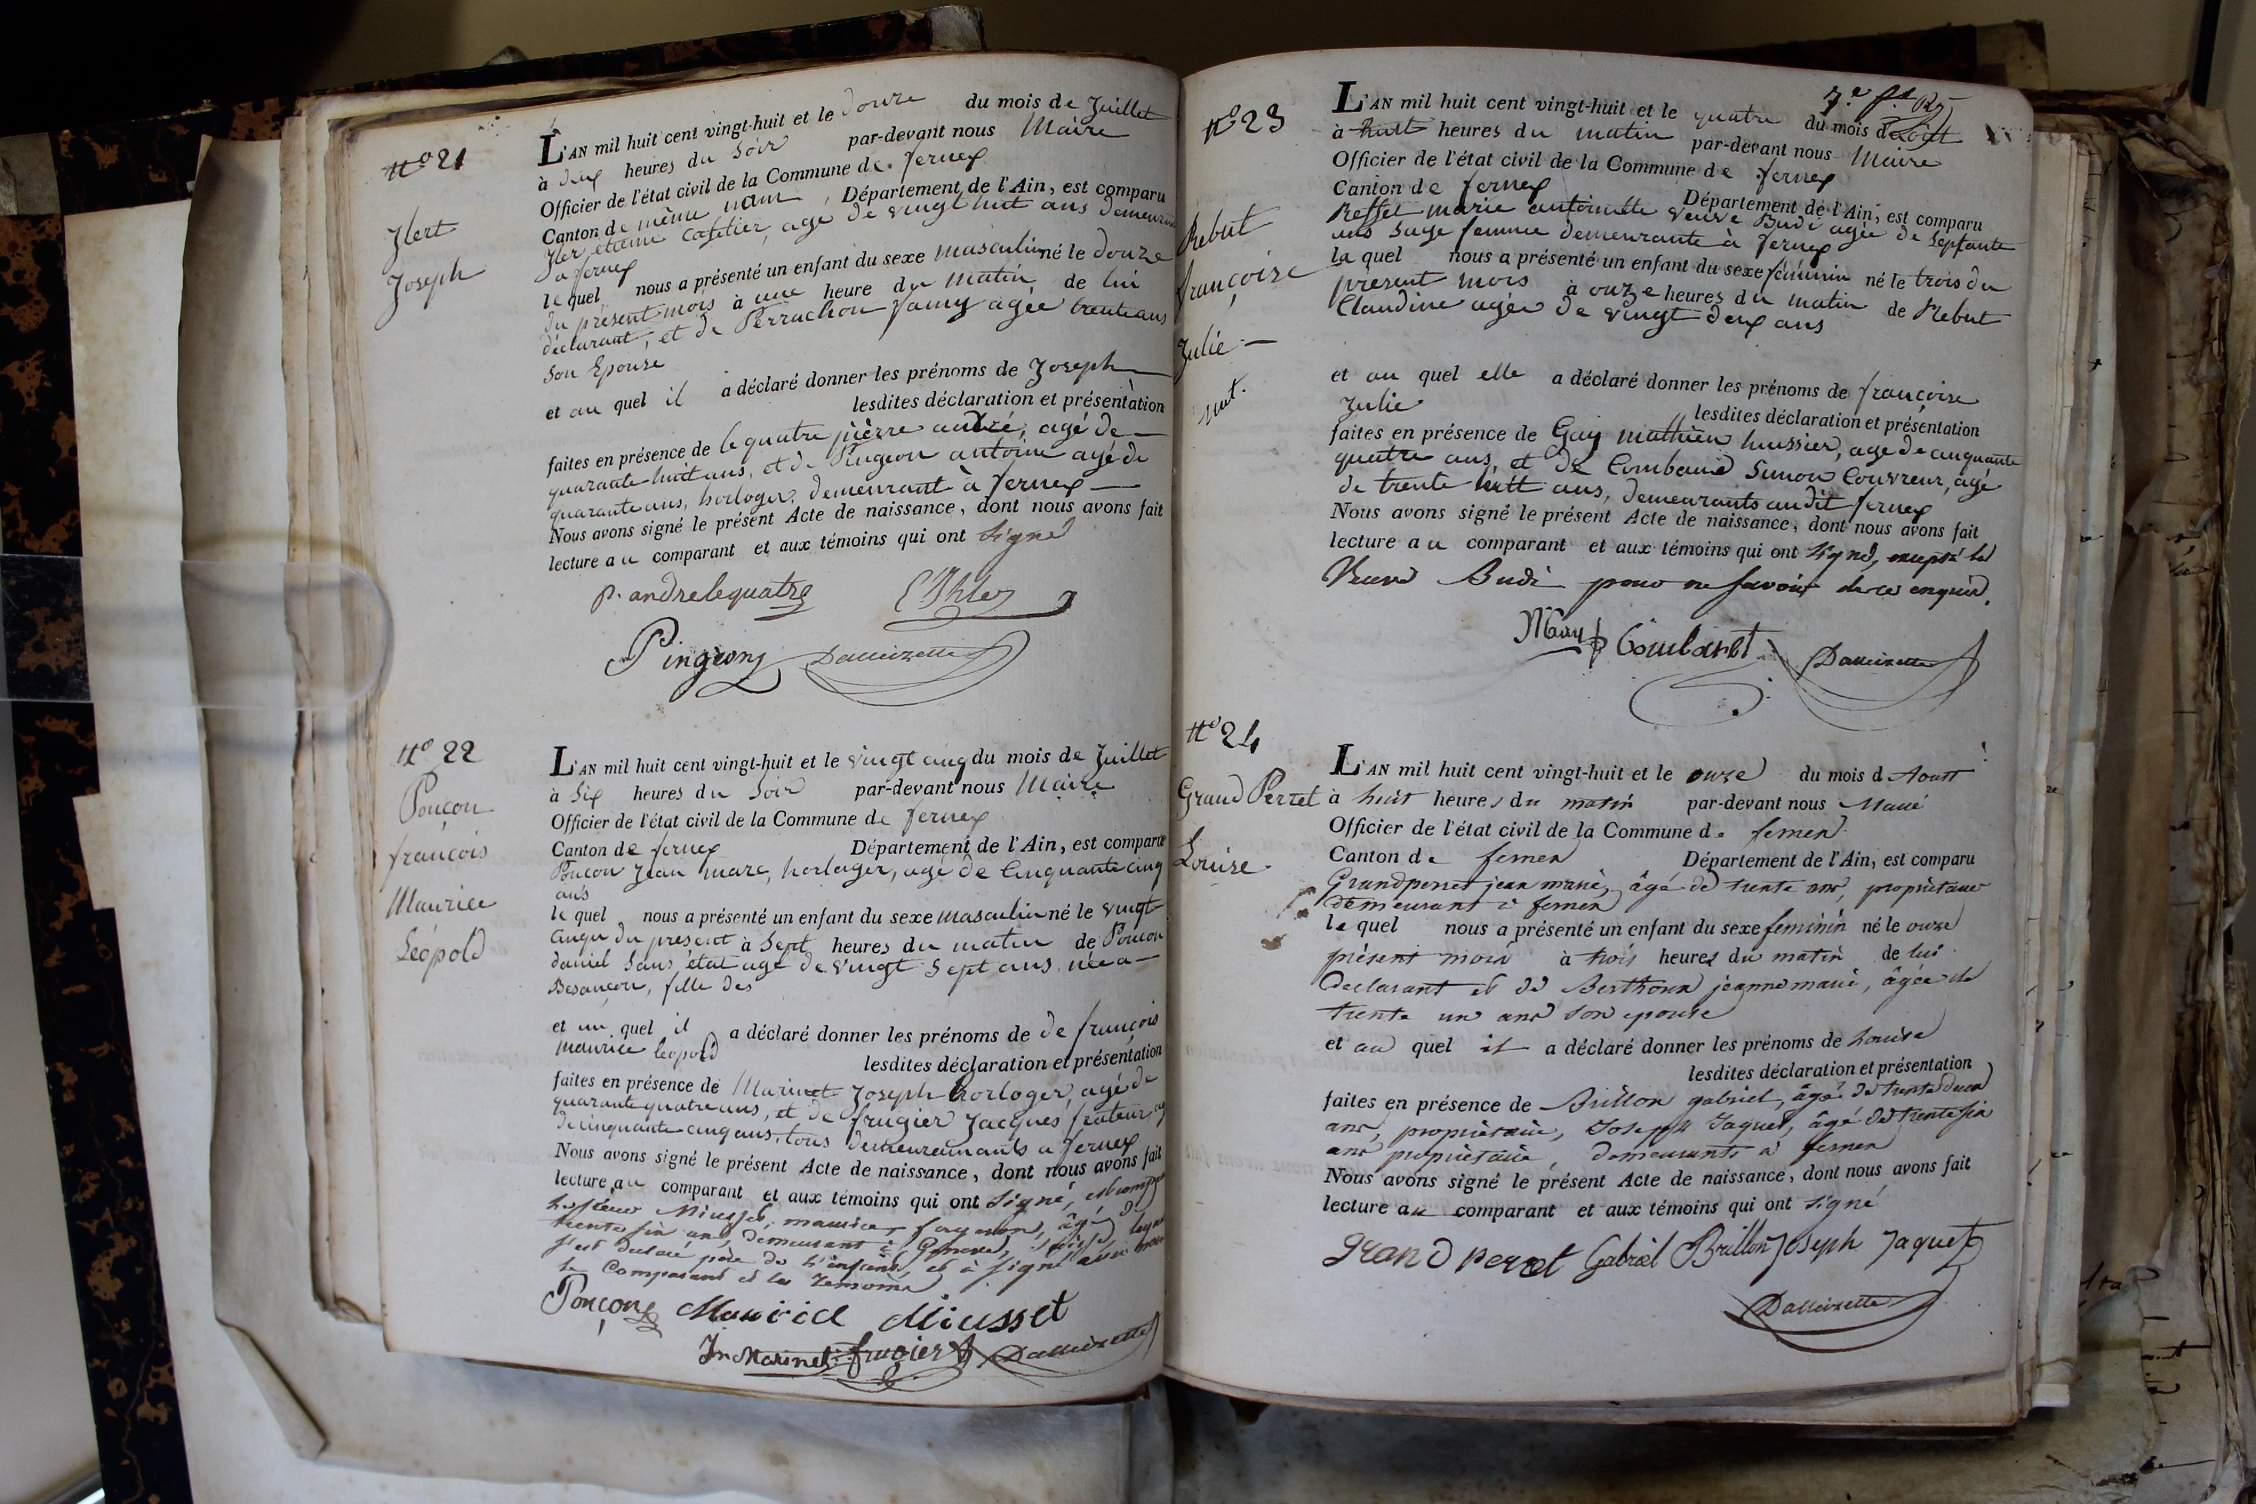 N° 21
Jlert
Joseph
L'AN mil huit cent vingt-huit et le douze du mois de Juillet
à deux heures du Soir par-devant nous Maire
Officier de l'état civil de la Commune de fernex
Canton de même nom, Département de l'Ain, est comparu
etienne Cafetier, agé de vingt huit ans demeurant
a fernex
le quel nous a présenté un enfant du sexe masculin né le douze
du présent mois à une heure du matin de lui
déclarant, et de Perrachon famy agée trente ans
Son Epouse
et au quel il a déclaré donner les prénoms de Joseph
lesdites déclaration et présentation
faites en présence de lequatre pierre andré, agé de
quarante huit ans, et de Pingeon antoine agé de
quarante ans, horloger, demeurant à fernex
Nous avons signé le présent Acte de naissance, dont nous avons fait
lecture au comparant et aux témoins qui ont signé
P. andre lequatre
Pingeon
N° 22
Ponçon
françois
Maurice
Léopold
L'AN mil huit cent vingt-huit et le vingt cinq du mois de Juillet
à Six heures du Soir par-devant nous Maire
Officier de l'état civil de la Commune de fernex
Canton de fernex Département de l'Ain, est comparu
Poncon Jean marc, horloger, agé de Cinquante cinq
ans
le quel nous a présenté un enfant du sexe masculin né le vingt
cinqu du présent à Sept heures du matin de Poncon
daniel Sans état agé de vingt Sept ans née a
Besançon, fille des
et au quel il a déclaré donner les prénoms de de françois
maurice léopold lesdites déclaration et présentation
faites en présence de Marinet Joseph horloger, agé de
quarante quatre ans, et de frugier Jacques
de cinquante cinq ans, tous demeurants a fernex
Nous avons signé le présent Acte de naissance, dont nous avons fait
lecture au comparant et aux témoins qui ont signé, est comparu
le sieur Miusset, maurice, âgé de
trente six ans, demeurant à Genève, lequel
s'est declaré père de l'enfant, et à signé avec nous
le Comparant et les temoins
Ponçon Mauricl Miusset
Jh Marinet frugier
7.e f.t
N° 23
Rebut
françoise
Julie
nat.
L'AN mil huit cent vingt-huit et le quatre du mois d'Août
à huit heures du matin par-devant nous Maire
Officier de l'état civil de la Commune de fernex
Canton de fernex Département de l'Ain, est comparu
Reffet marie antoinette veuve Budi agée de Septante
ans Sage femme demeurante à fernex
la quel nous a présenté un enfant du sexe féminin né le trois du
présent mois à onze heures du matin de Rebut
Claudine agée de vingt deux ans
et au quel elle a déclaré donner les prénoms de françoise
Julie lesdites déclaration et présentation
faites en présence de Gay mathieu huissier, age de cinquante
quatre ans, et de Simon Couvreur, agé
de trente huit ans, demeurants audit fernex
Nous avons signé le présent Acte de naissance, dont nous avons fait
lecture au comparant et aux témoins qui ont signé, excepté la
Veuve Budi pour ne savoir de ce enquis.
N° 24
Grand Perret
Louise
L'AN mil huit cent vingt-huit et le onze du mois d Aoust
à huit heures du matin par-devant nous Maire
Officier de l'état civil de la Commune de fernex
Canton de fernex Département de l'Ain, est comparu
Grandperret jean marie, âgé de trente ans, propriétaire
demeurant à fernex
le quel nous a présenté un enfant du sexe féminin né le onze
présent mois à trois heures du matin de lui
Declarant et de Berthoux jeanne marie, âgée de
trente un ans son epouse
et au quel il a déclaré donner les prénoms de Louise
lesdites déclaration et présentation
faites en présence de Brillon gabriel, âgé de trente deux
ans, propriétaire, Joseph Jaquet, âgé de trente six
ans propriétaire, demeurants à fernex
Nous avons signé le présent Acte de naissance, dont nous avons fait
lecture au comparant et aux témoins qui ont signé
grand perret Gabriel Brillon Joseph Jaquet